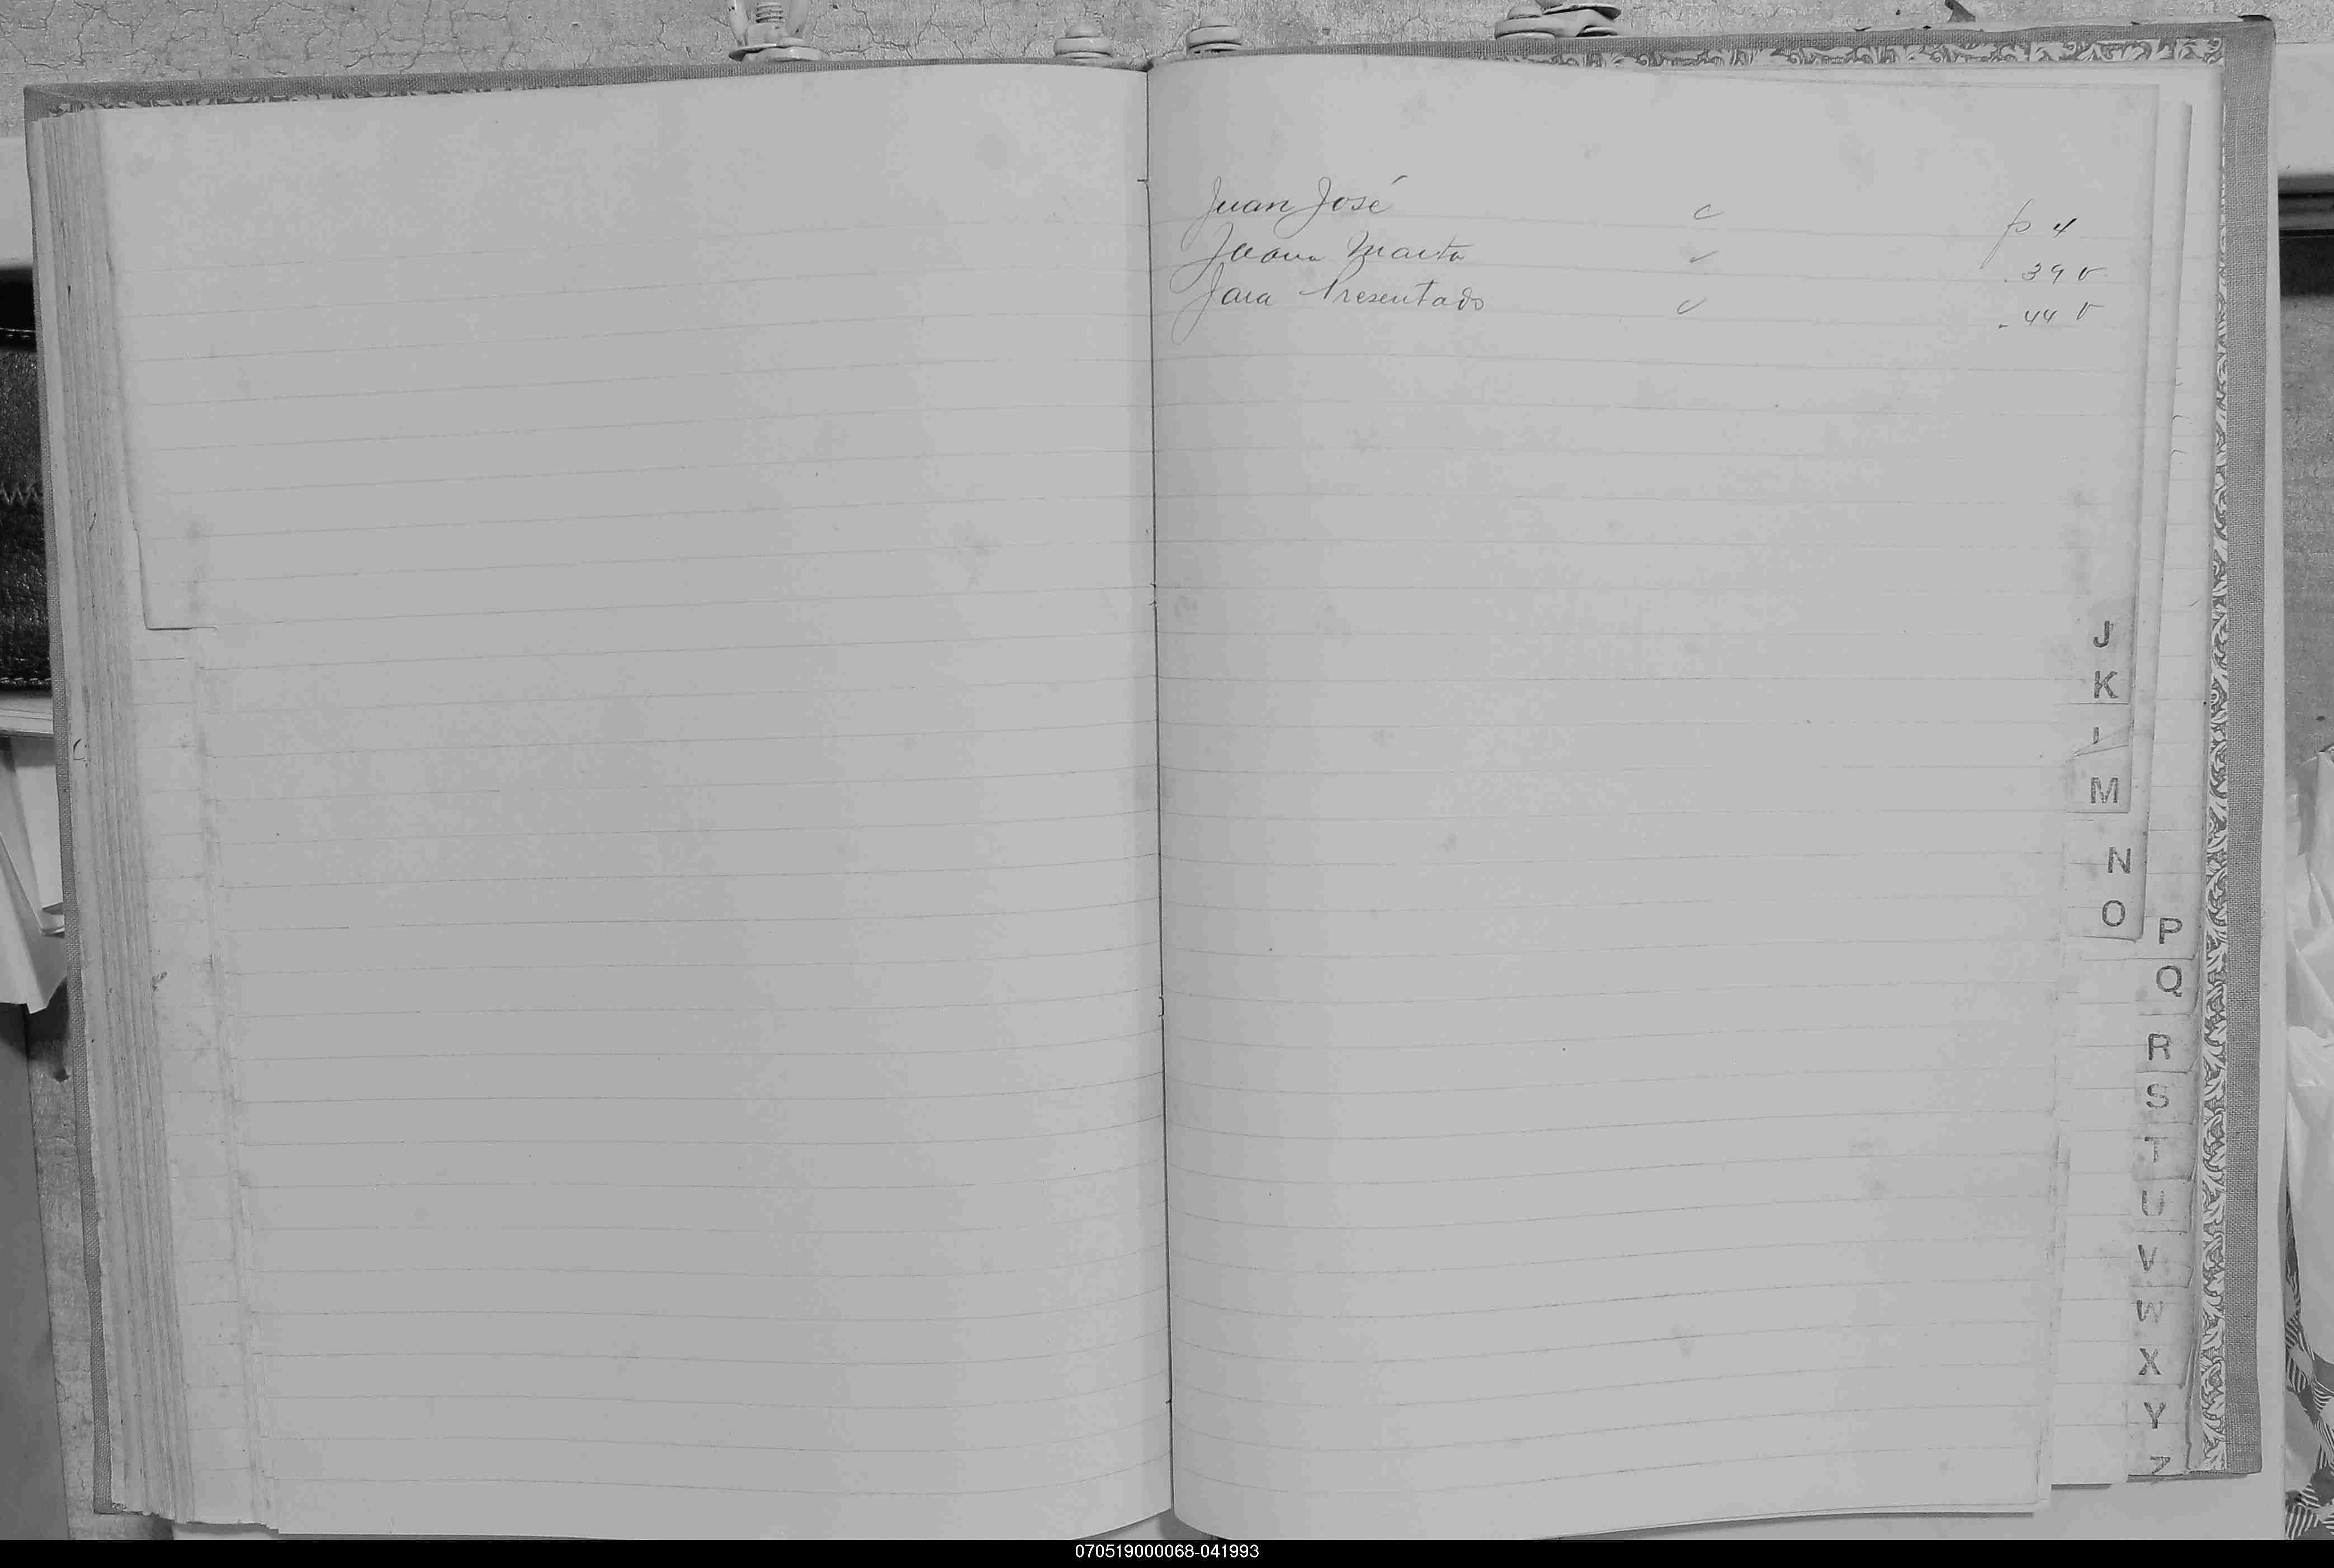 Juan José c p 4
Juana Marta . 39 v
Jara Presentado . 44 v
J
K
M
N
O
P
Q
R
S
T
U
V
W
X
Y
Z
070519000068-041993